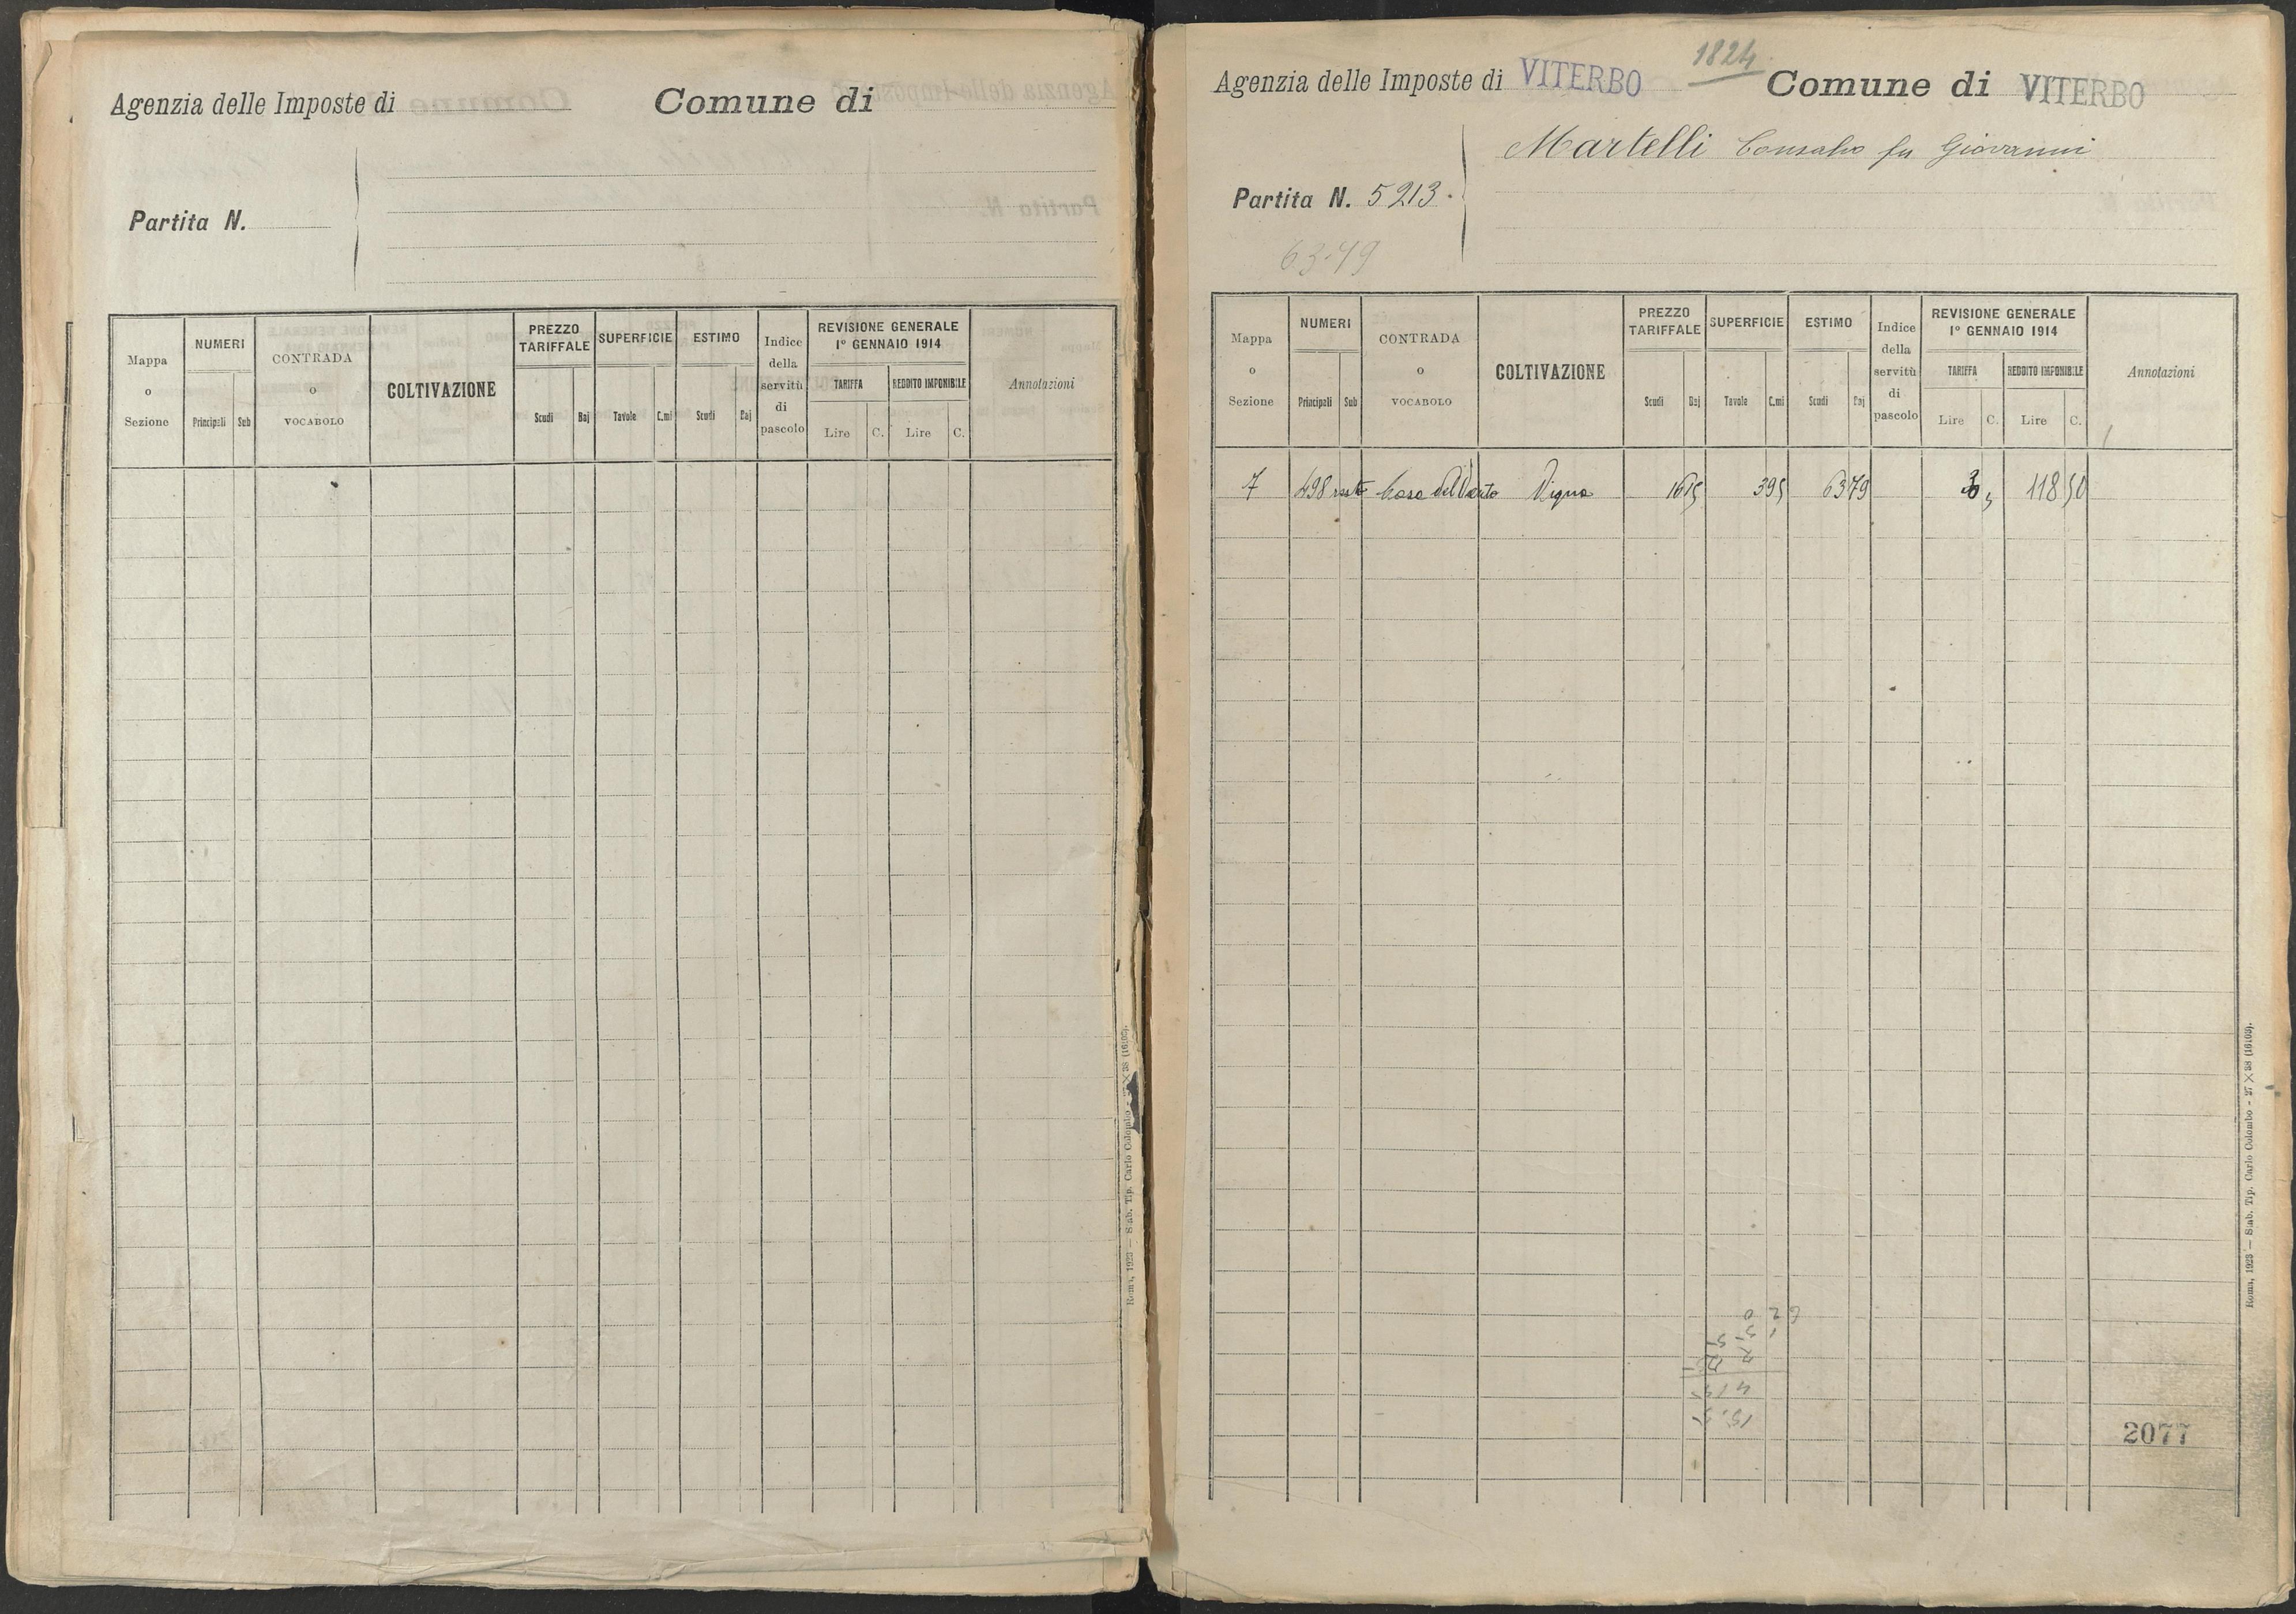 Agenzia delle Imposte di
Comune di
Partita N.
Mappa o Sezione
NUMERI
Principali Sub
CONTRADA o VOCABOLO
COLTIVAZIONE
PREZZO TARIFFALE
Scudi Baj
SUPERFICIE
Tavole C.mi
ESTIMO
Scudi Baj
Indice della servitù di pascolo
REVISIONE GENERALE
1° GENNAIO 1914
TARIFFA
Lire C.
REDDITO IMPONIBILE
Lire C.
Annotazioni
Roma, 1923 — Stab. Tip. Carlo Colombo - 27 × 38 (16103).
1824
Agenzia delle Imposte di VITERBO
Comune di VITERBO
Martelli Consalvo fu Giovanni
Partita N. 5213.
63.79
Mappa o Sezione
NUMERI
Principali Sub
CONTRADA o VOCABOLO
COLTIVAZIONE
PREZZO TARIFFALE
Scudi Baj
SUPERFICIE
Tavole C.mi
ESTIMO
Scudi Baj
Indice della servitù di pascolo
REVISIONE GENERALE
1° GENNAIO 1914
TARIFFA
Lire C.
REDDITO IMPONIBILE
Lire C.
Annotazioni
7 498 Vigna 16 15 3 95 63 79 118 50
2077
Roma, 1923 — Stab. Tip. Carlo Colombo - 27 × 38 (16103).